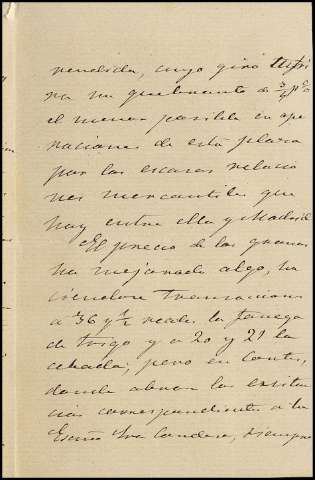 vendida, cuyo giro sufri
ra un quebranto de 3/4 p%
el menor posible en ope
raciones de esta plaza
por las escasas relacio
nes mercantiles que
hay entre ella y Madrid.
El precio de los granos
ha mejorado algo, ha
ciendose transacciones
a 36 y 1/2 reales la fanega
de trigo y a 20 y 21 la
cebada, pero en
donde abundan las existen
cias correspondientes a la
Excma Sra Condesa, siempre